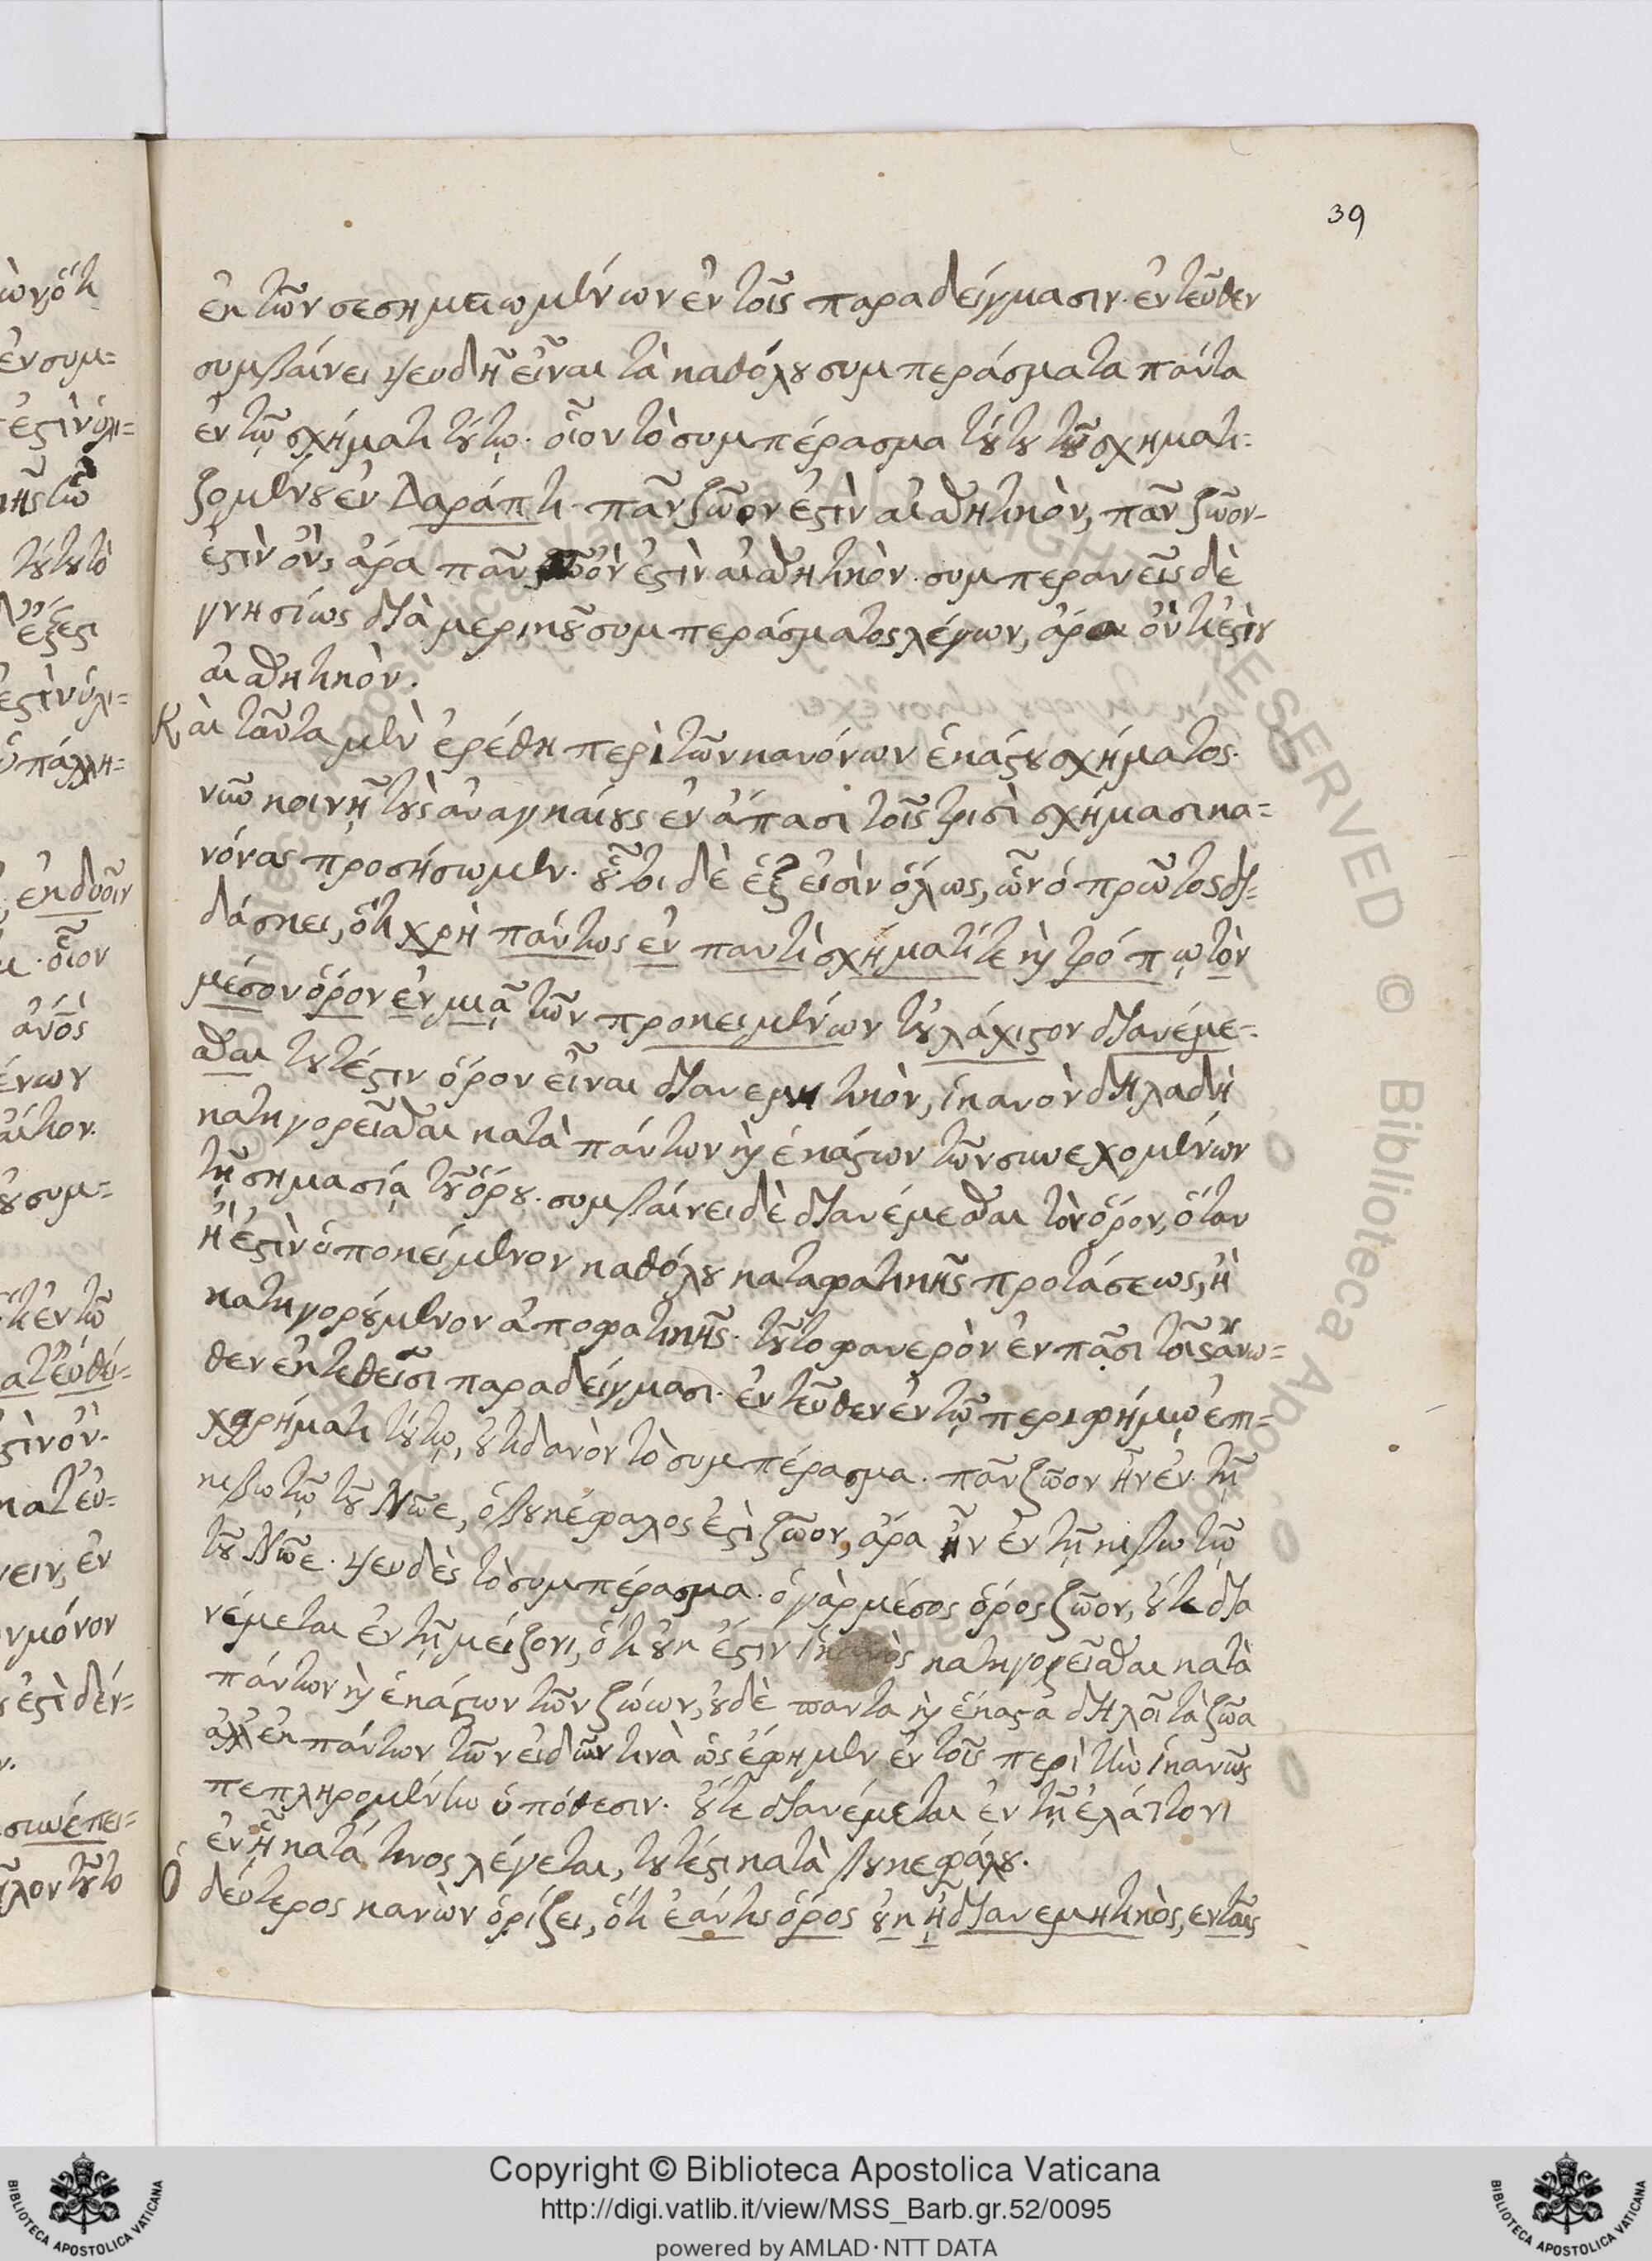 39
ἐκ τῶν σεσημειωμένων ἐν τοῖς παραδείγμασιν. ἐντεῦθεν
συμβαίνει ψευδῆ εἶναι τὰ καθόλου συμπεράσματα πάντα
ἐν τῷ σχήματι τούτῳ. οἷον τὸ συμπέρασμα τούτου τοῦ σχηματι=
ζομένου ἐν Δαράπτι. πᾶν ζῶον ἐστὶν αἰσθητικὸν, πᾶν ζῶον
ἐστὶν ὂν, ἄρα πᾶν ὂν ἐστὶν αἰσθητικὸν. συμπερανεῖς δὲ
γνησίως διὰ μερικοῦ συμπεράσματος λέγων, ἄρα ὄν τι ἐστὶν
αἰσθητικὸν.
Καὶ ταῦτα μὲν ἐρέθη περὶ τῶν κανόνων ἑκάστου σχήματος.
νῦν κοινῇ τοὺς ἀναγκαίους ἐν ἅπασι τοῖς τρισὶ σχήμασι κα=
νόνας προσήσωμεν. οὗτοι δὲ ἓξ εἰσὶν ὅλως, ὧν ὁ πρῶτος δι=
δάσκει, ὅτι χρὴ πάντως ἐν παντὶ σχήματί τε καὶ τρόπῳ τὸν
μέσον ὅρον ἐν μιᾷ τῶν προκειμένων τοὐλάχιστον διανέμε=
σθαι τουτέστιν ὅρον εἶναι διανεμητικὸν, ἱκανὸν δηλαδὴ
κατηγορεῖσθαι κατὰ πάντων καὶ ἑκάστων τῶν συνεχομένων
τῇ σημασίᾳ τοῦ ὅρου. συμβαίνει δὲ διανέμεσθαι τὸν ὅρον, ὅταν
ἢ ἐστὶν ὑποκείμενον καθόλου καταφατικῆς προτάσεως, ἢ
κατηγορούμενον ἀποφατικῆς. τοῦτο φανερὸν ἐν πᾶσι τοῖς ἄνω=
θεν ἐκτεθεῖσι παραδείγμασι. ἐντεῦθεν ἐν τῷ περιφήμῳ ἐπι=
χειρήματι τούτῳ, οὐτιδανὸν τὸ συμπέρασμα. πᾶν ζῶον ἦν ἐν τῇ
κιβωτῷ τοῦ Νῶε, ὁ βουκέφαλος ἐστὶ ζῶον, ἄρα ἦν ἐν τῇ κιβωτῷ
τοῦ Νῶε. ψευδὲς τὸ συμπέρασμα. ὁ γὰρ μέσος ὅρος ζῶον, οὔτε δια
νέμεται ἐν τῇ μείζονι, ὅτι οὐκ ἔστιν ἱκανὸς κατηγορεῖσθαι κατὰ
πάντων καὶ ἑκάστων τῶν ζώων, οὐδὲ παντα καὶ ἕκαστα δηλοῖ τὰ ζῶα
ἀλλ' ἐκ πάντων τῶν εἰδῶν τινὰ ὡς ἔφημεν ἐν τοῖς περὶ τὴν ἱκανῶς
πεπληρομένην ὑπόθεσιν. οὔτε διανέμεται ἐν τῇ ἐλάττονι
ἐν ᾗ κατά τινος λέγεται, τουτέστι κατὰ βουκεφάλου.
Ὁ δεύτερος κανὼν ὁρίζει, ὅτι ἐάν τις ὅρος οὐκ ᾖ διανεμητικὸς, ἐν ταῖς
Copyright © Biblioteca Apostolica Vaticana
http://digi.vatlib.it/view/MSS_Barb.gr.52/0095
powered by AMLAD·NTT DATA